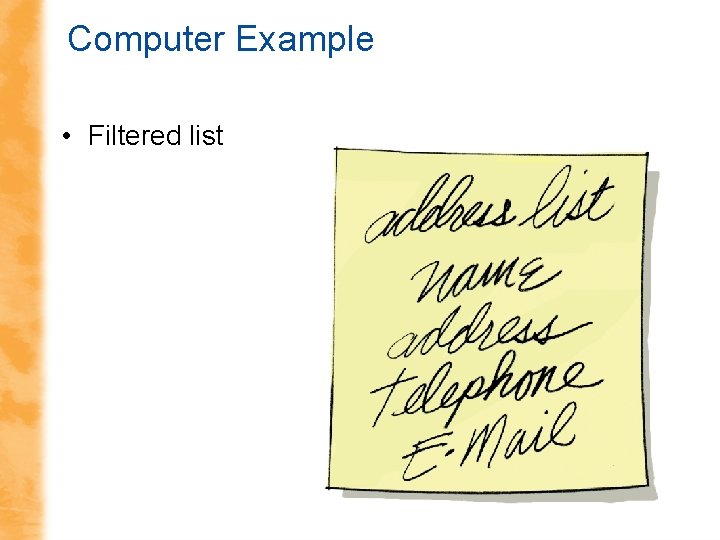 Computer Example
• Filtered list
address list
name
address
telephone
E-Mail